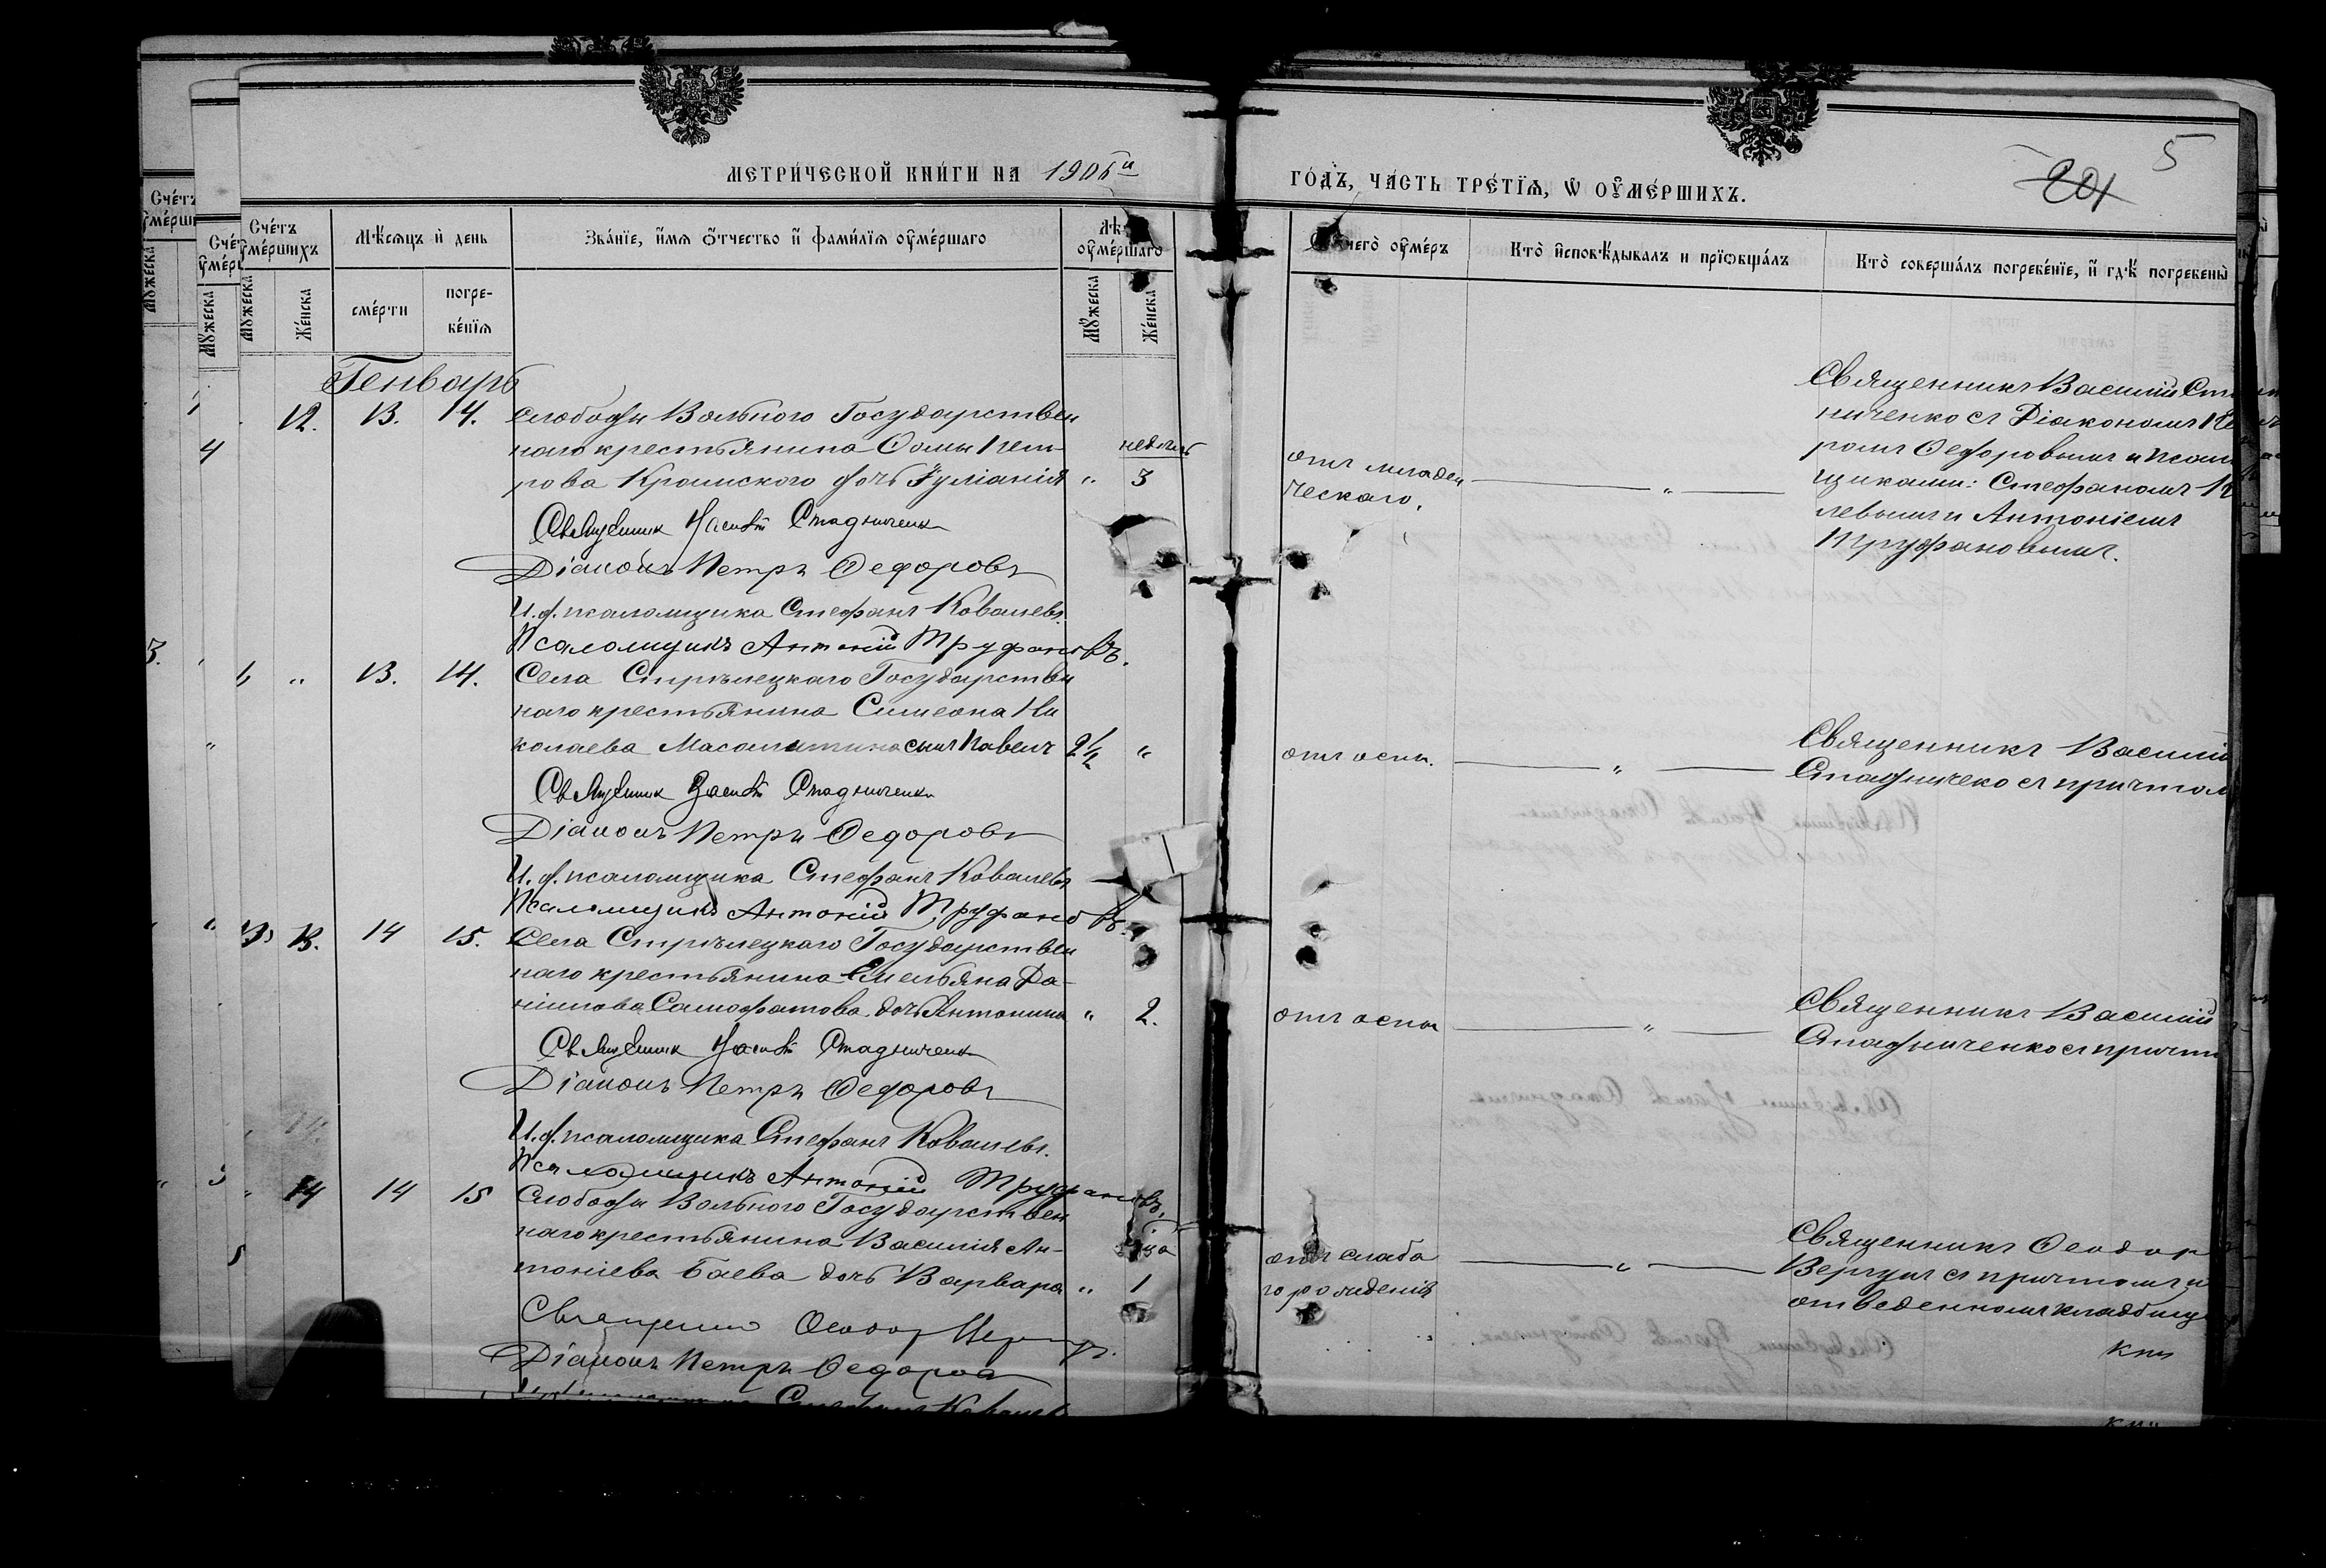 МЕТРИ́ЧЕСКОЙ КНИ́ГИ НА 1906й
ГО́ДЪ, ЧА́СТЬ ТРЕ́ТЇѦ, Ѡ ОУМЕ́РШИХЪ.
5
Сче́тъ оумершихъ
Мѣсѧцъ и день
Зва́нїе, и́мѧ о́тчество и фами́лїѧ оуме́ршаго
Лѣ оуме́ршаго
чего̀ оуме́ръ
Кто̀ исповѣ́дывалъ и прїѡбща́лъ
Кто̀ соверша́лъ погребе́нїе, и гдѣ̀ погребены̀
Мꙋ́жеска
Же́нска
сме́рти
погре-
бе́нїѧ
Мꙋ́жеска
Же́нска
Генварь
12. 13. 14. Слободы Вольного Государствен
наго крестьянина Ѳомы Пет-
рова Крамского дочь Iуліанія " недель 3
отъ младен
ческаго.
Священникъ Василій
ниченко съ Діакономъ
ромъ Ѳедоровымъ и
щиками: Стефаномъ
левымъ и Антоніемъ
Труфановымъ.
Священник Василій Стадниченко
Діаконъ Петръ Ѳедоровъ
И. д. псаломщика Стефанъ Ковалевъ
Псаломщикъ Антоній Труфановъ.
" 13. 14. Села Стрѣлецкаго Государствен
наго крестьянина Симеона Ни
колаева сынъ Павелъ 2½ "
отъ оспы.
Священникъ Василій
Стадничеко съ причтом
Священник Василій Стадниченко
Діаконъ Петръ Ѳедоровъ
И. д. псаломщика Стефанъ Ковалевъ
Псаломщикъ Антоній Труфановъ.
13. 14 15. Села Стрѣлецкаго Государствен
наго крестьянина Емельяна Да-
ніилова Самофатова дочь Антонина " 2.
отъ оспы
Священникъ Василій
Стадниченко съ причт
Священник Василій Стадниченко
Діаконъ Петръ Ѳедоровъ
И. д. псаломщика Стефанъ Ковалевъ.
Псаломщикъ Антоній Труфановъ.
" 14 14 15 Слободы Вольного Государствен
наго крестьянина Василія Ан-
тоніева Баева дочь Варвара " 1
отъ слаба
го рожденія
Священникъ Ѳеодор
съ причтомъ
отведенномъ кладбищ
Священник Ѳеодор
Діаконъ Петръ Ѳедоров
Стефанъ Ковалев